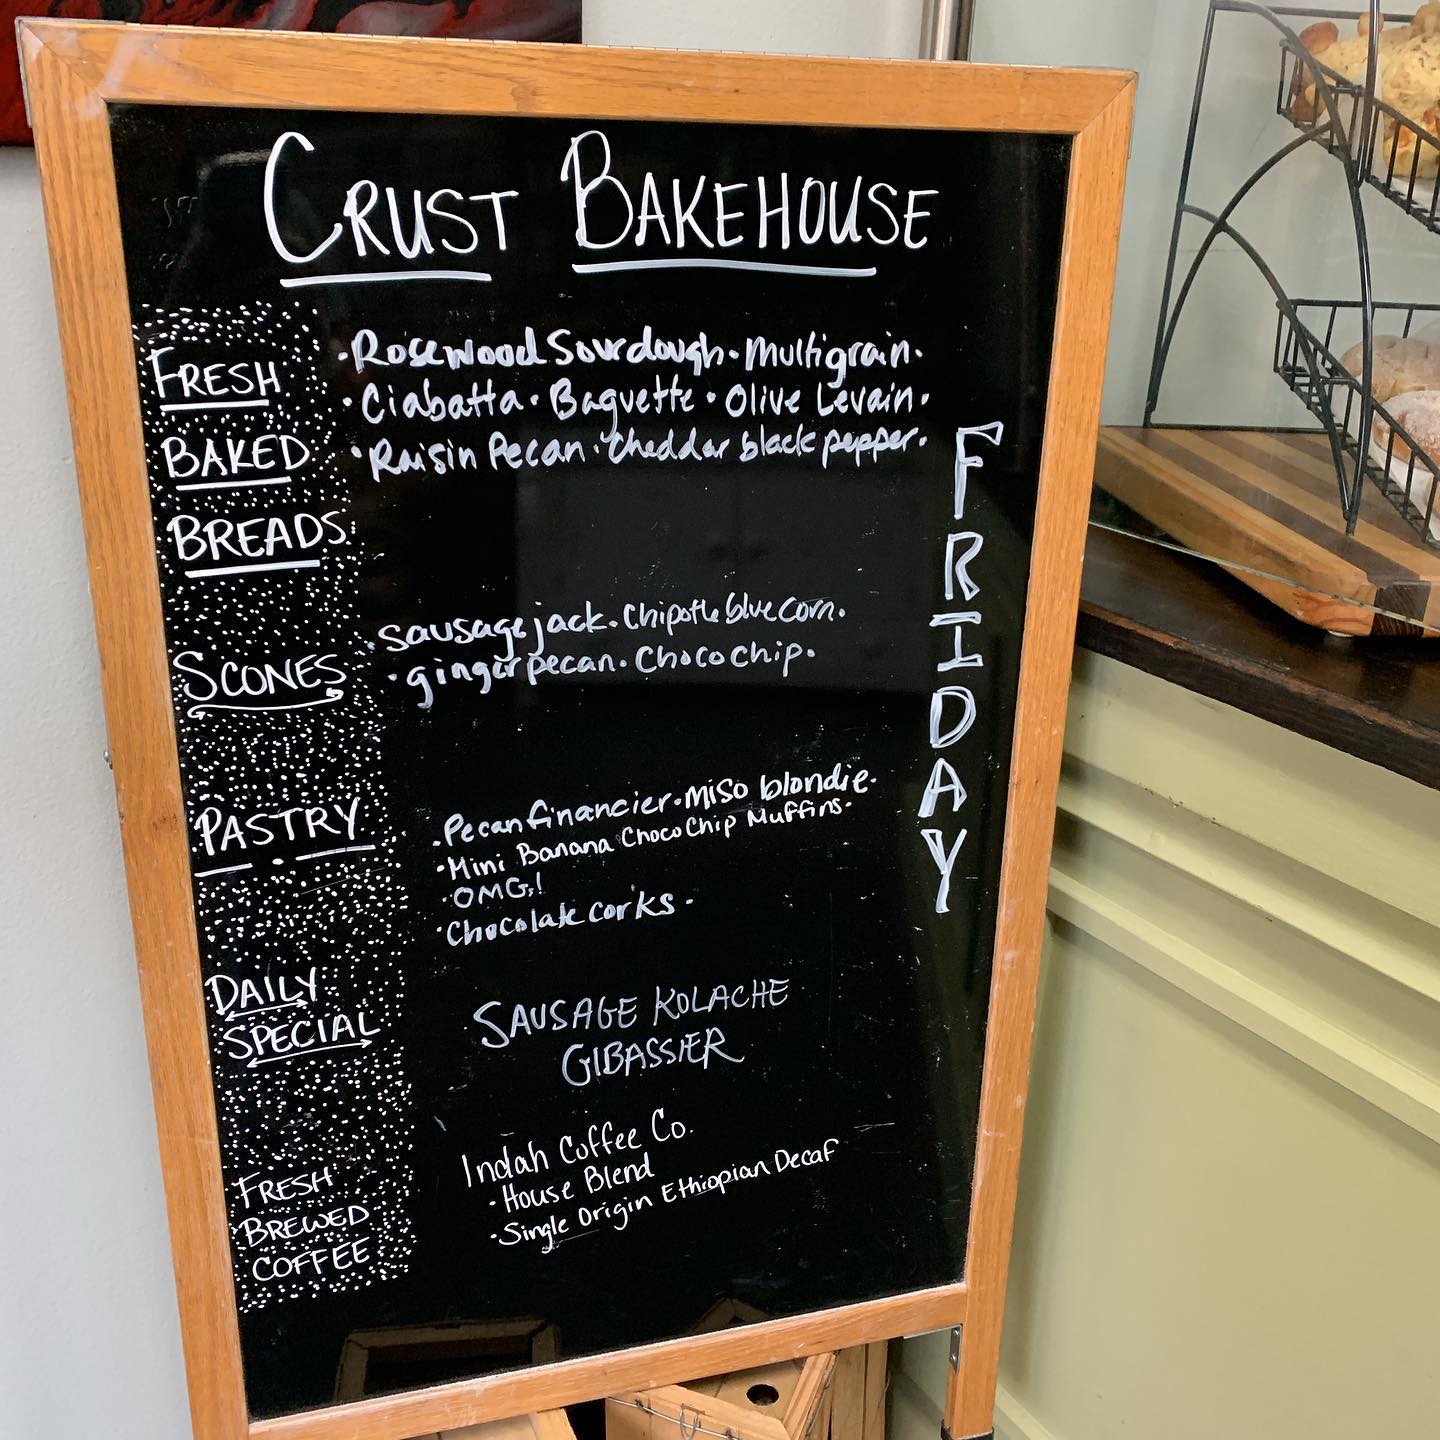 CRUST BAKEHOUSE
FRESH
BAKED
BREADS
·Rosewood Sourdough·Multigrain·
·Ciabatta·Baguette·Olive Levain·
·Raisin Pecan·Cheddar black pepper·
SCONES
·Sausage jack·Chipotle blue corn·
·ginger pecan·Choco chip·
PASTRY
·Pecan financier·miso blondie·
·Mini Banana Choco Chip Muffins·
·OMG!
·Chocolate corks·
DAILY
SPECIAL
SAUSAGE KOLACHE
GIBASSIER
FRESH
BREWED
COFFEE
Indah Coffee Co.
·House Blend
·Single Origin Ethiopian Decaf
FRIDAY